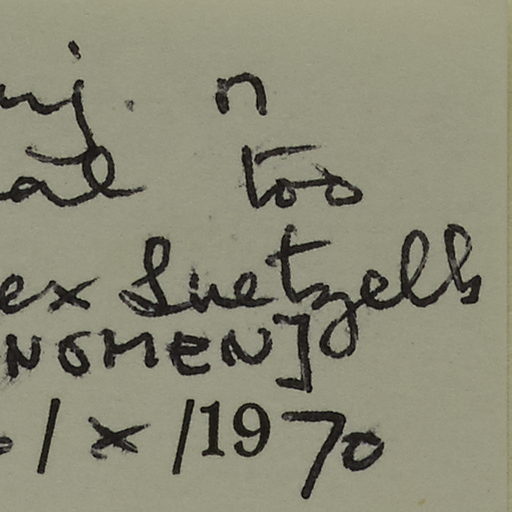 n
too
ex Luetzelb
NOMEN]
/ x /1970